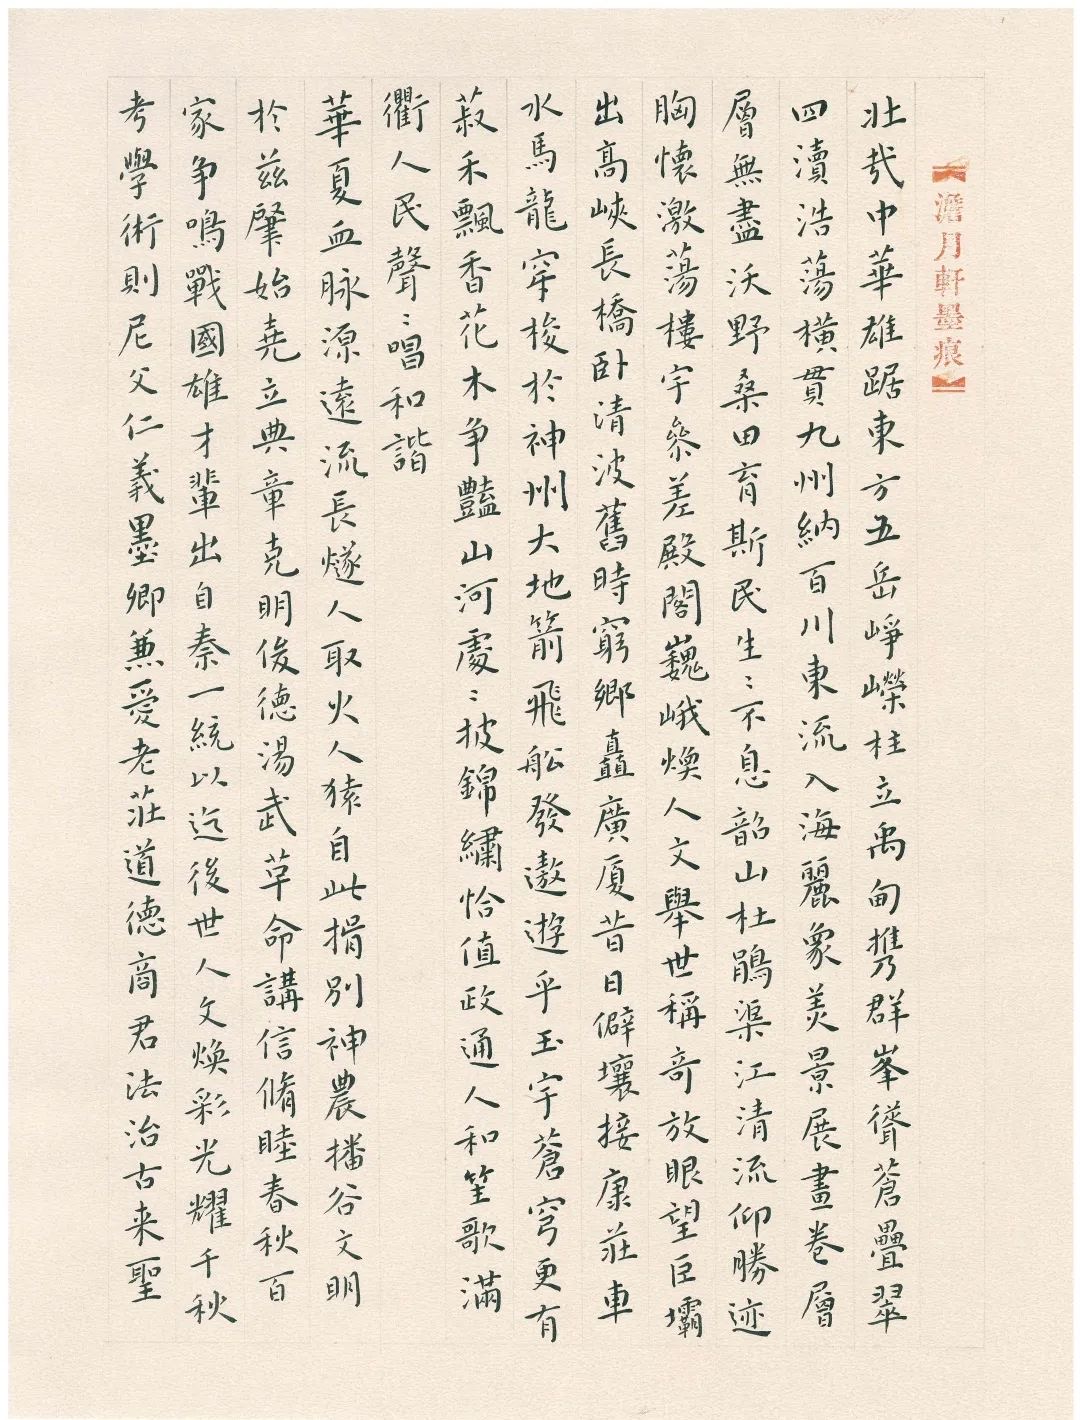 澹月軒墨痕
壯哉中華雄踞東方五岳崢嶸柱立禹甸携群峯聳蒼疊翠
四瀆浩蕩橫貫九州納百川東流入海麗象美景展畫卷層
層無盡沃野桑田育斯民生〻不息韶山杜鵑渠江清流仰勝迹
胸懷激蕩樓宇叅差殿閣巍峨煥人文舉世稱奇放眼望巨壩
出高峽長橋卧清波舊時窮鄉矗廣厦昔日僻壤接康莊車
水馬龍穿梭於神州大地箭飛船發遨遊乎玉宇蒼穹更有
菽禾飄香花木争豔山河處〻披錦繡恰值政通人和笙歌滿
衢人民聲〻唱和諧
華夏血脉源遠流長燧人取火人猿自此揖別神農播谷文明
於兹肇始堯立典章克明俊德湯武革命講信脩睦春秋百
家争鳴戰國雄才輩出自秦一統以迄後世人文煥彩光耀千秋
考學術則尼父仁義墨卿兼愛老莊道德商君法治古来聖